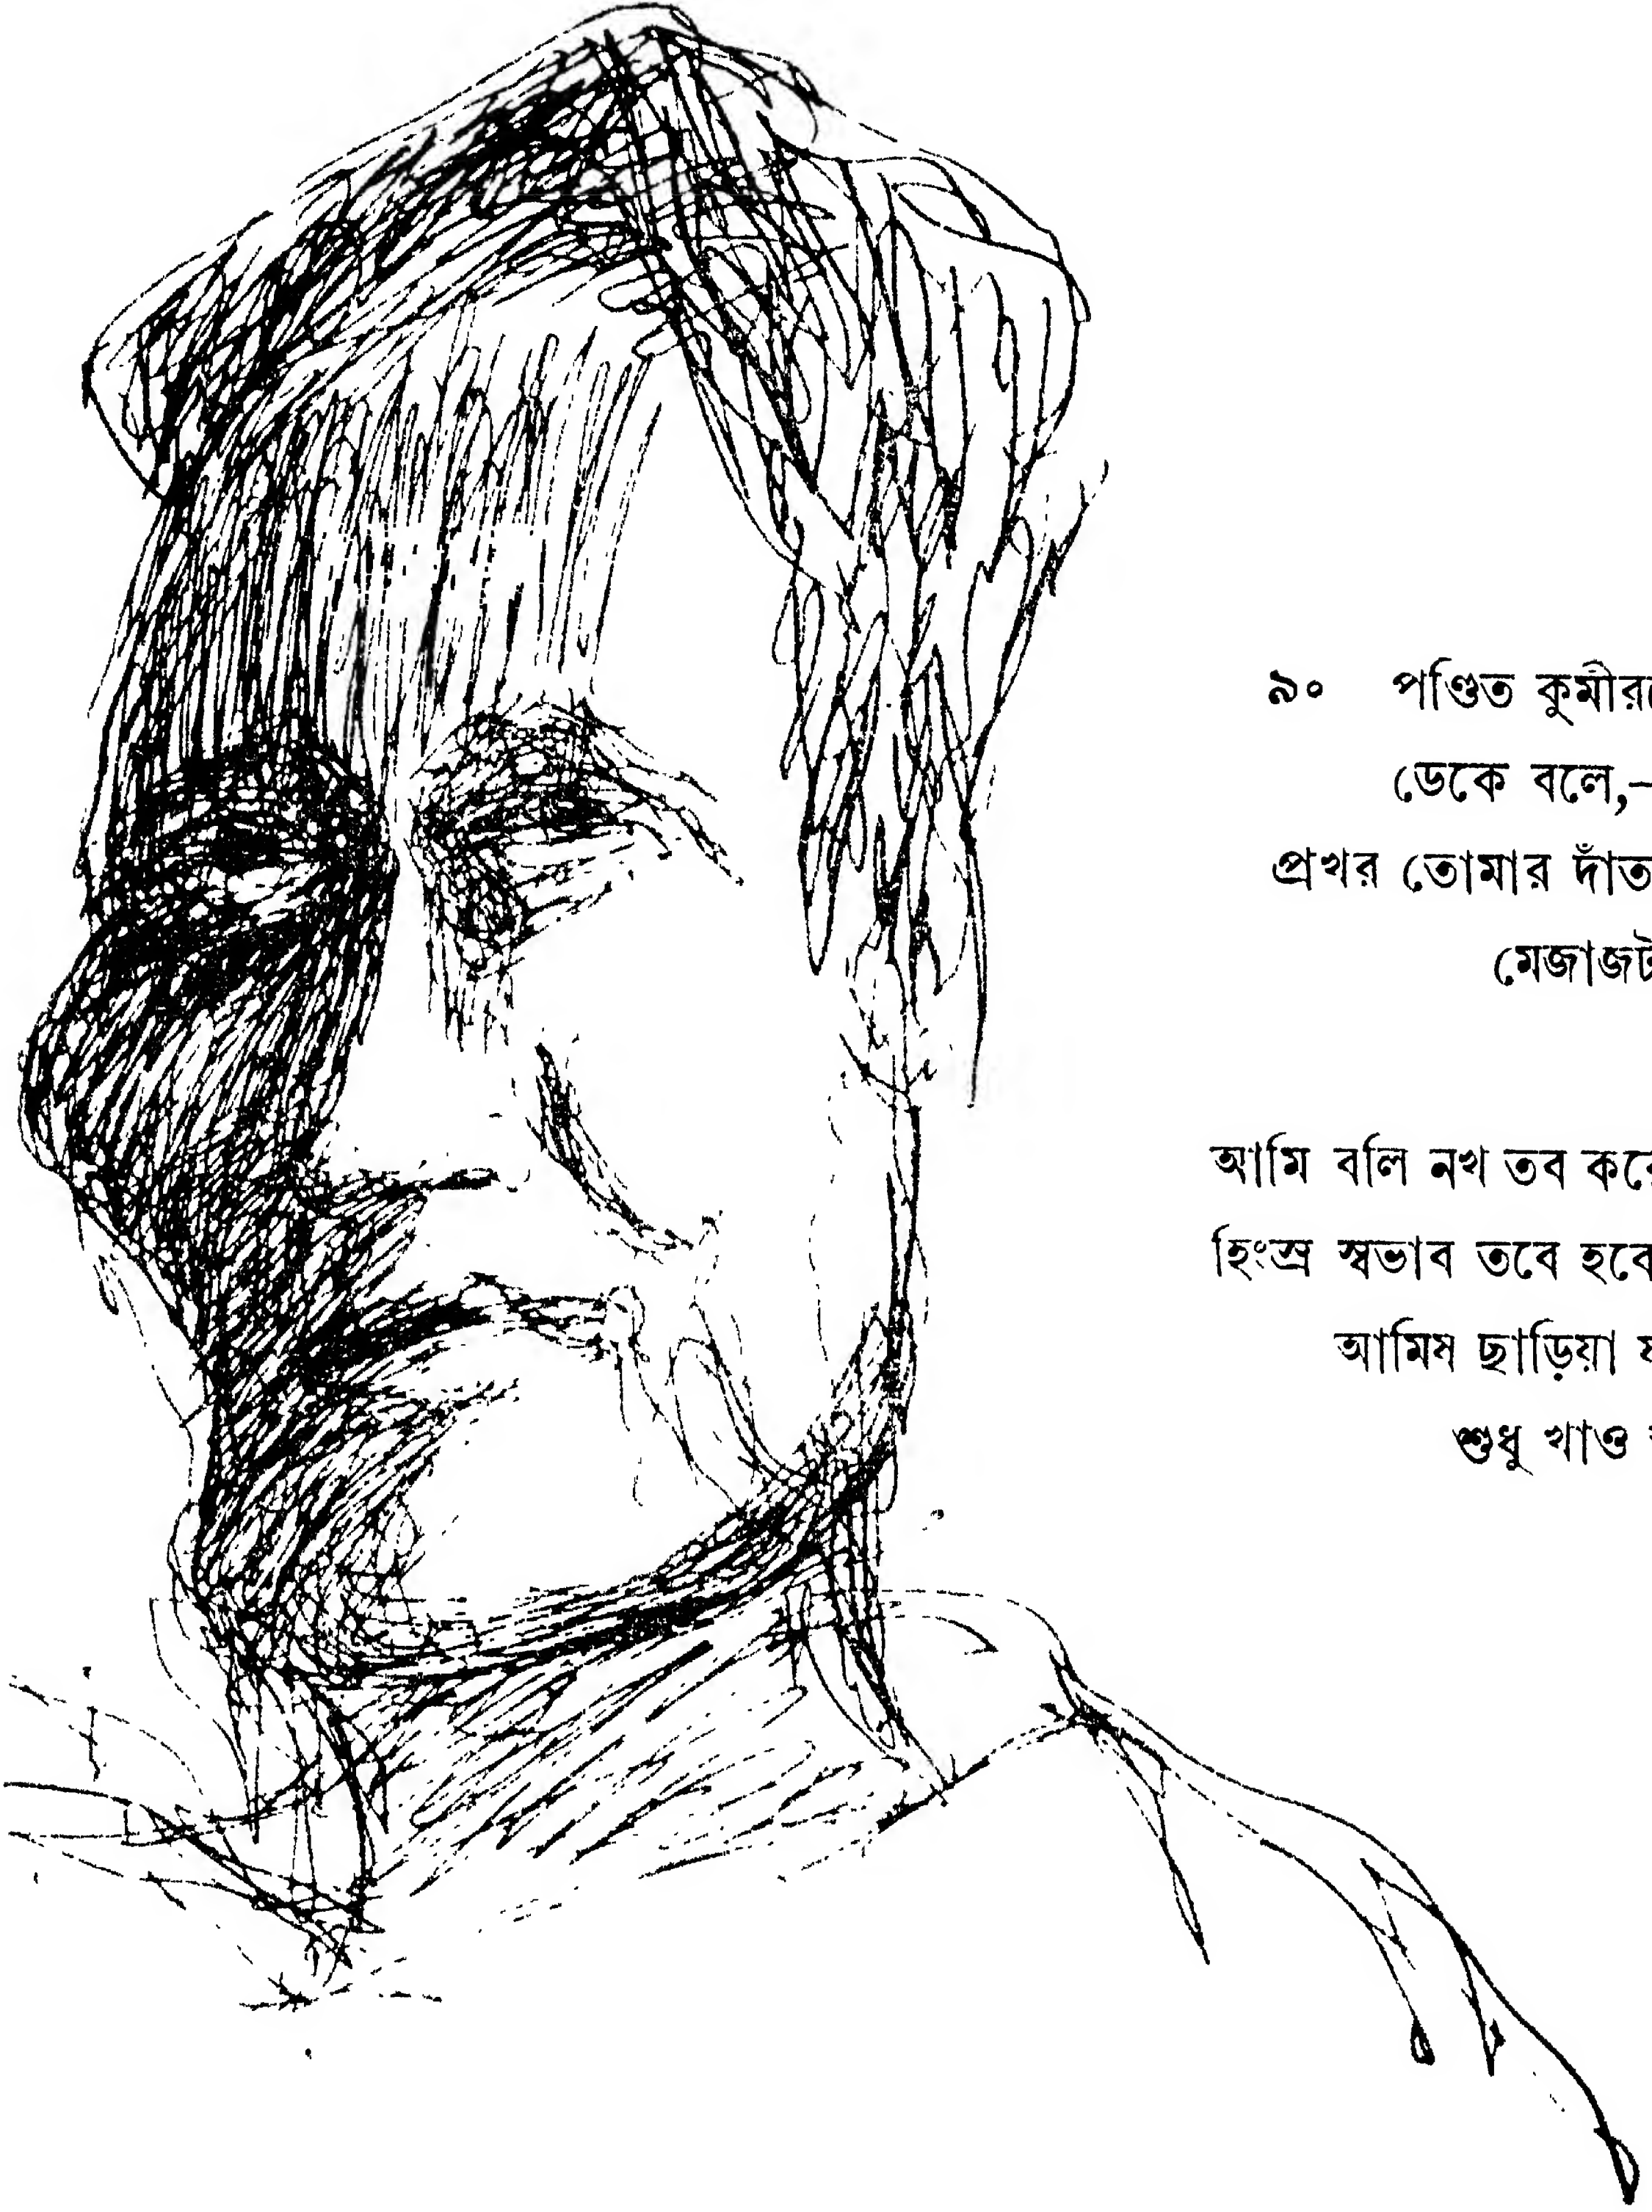 ৯০ পণ্ডিত কুমীর
ডেকে বলে,–
প্রখর তোমার দাঁত
মেজাজট
আমি বলি নখ তব করে
হিংস্র স্বভাব তবে হবে
আমিষ ছাড়িয়া
শুধু খাও